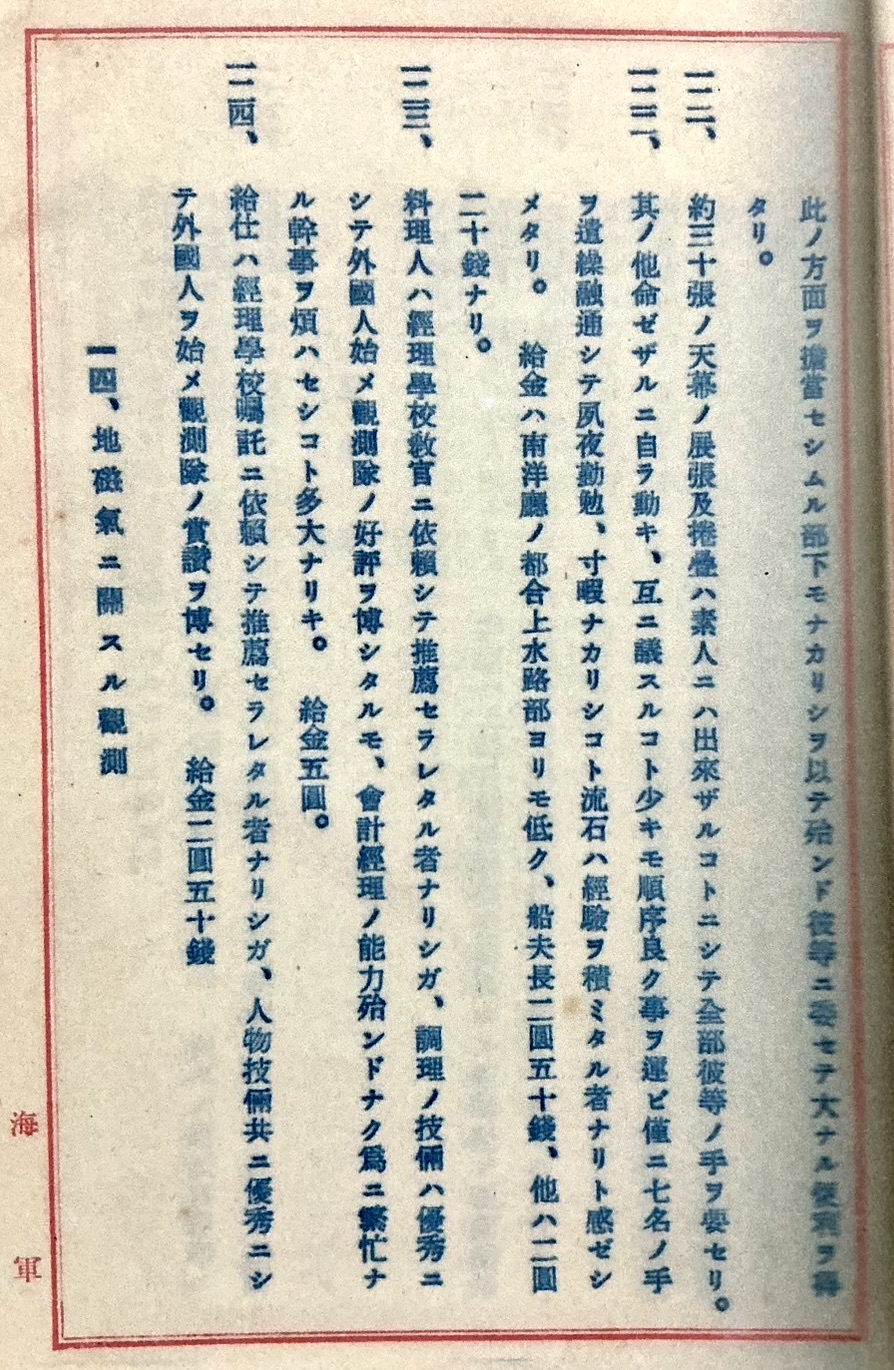 此ノ方面ヲ擔當セシムル部下モナカリシヲ以テ殆ンド彼等ニ委セテ大ナル便利ヲ得
タリ。
一二一、 約三十張ノ天幕ノ展張及捲疊ハ素人ニハ出來ザルコトニシテ全部彼等ノ手ヲ要セリ。
一二二、 其ノ他命ゼザルニ自ラ動キ、互ニ議スルコト少キモ順序良ク事ヲ運ビ僅ニ七名ノ手
ヲ遣繰融通シテ夙夜勤勉、寸暇ナカリシコト流石ハ經驗ヲ積ミタル者ナリト感ゼシ
メタリ。 給金ハ南洋廳ノ都合上水路部ヨリモ低ク、船夫長二圓五十錢、他ハ二圓
二十錢ナリ。
一二三、 料理人ハ經理學校敎官ニ依賴シテ推薦セラレタル者ナリシガ、調理ノ技倆ハ優秀ニ
シテ外國人始メ觀測隊ノ好評ヲ博シタルモ、會計經理ノ能力殆ンドナク爲ニ繁忙ナ
ル幹事ヲ煩ハセシコト多大ナリキ。 給金五圓。
一二四、 給仕ハ經理學校囑託ニ依賴シテ推薦セラレタル者ナリシガ、人物技倆共ニ優秀ニシ
テ外國人ヲ始メ觀測隊ノ賞讚ヲ博セリ。 給金二圓五十錢
一四、地磁氣ニ關スル觀測
海軍